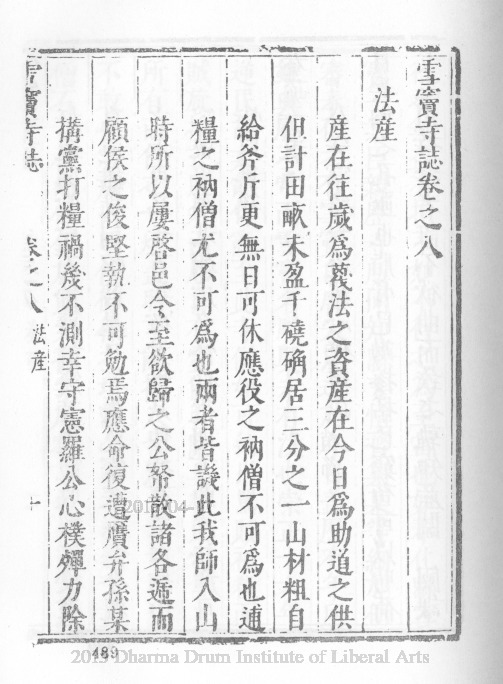 雪竇寺誌卷之八
法產
產在往歲為護法之資產在今日為助道之供
但計田畝未盈千磽确居三分之一山材粗自
給斧斤更無日可休應役之衲僧不可為也逋
糧之衲僧尤不可為也兩者皆譏此我師入山
時所以屢啓邑令至欲歸之公帑散諸各遁而
顧侯之俊堅執不可勉焉應命復遭贋弁孫某
搆黨打糧禍幾不測幸守憲羅公心樸殫力除
雪竇寺誌 卷之八 法產 一
489
2013 Dharma Drum Institute of Liberal Arts